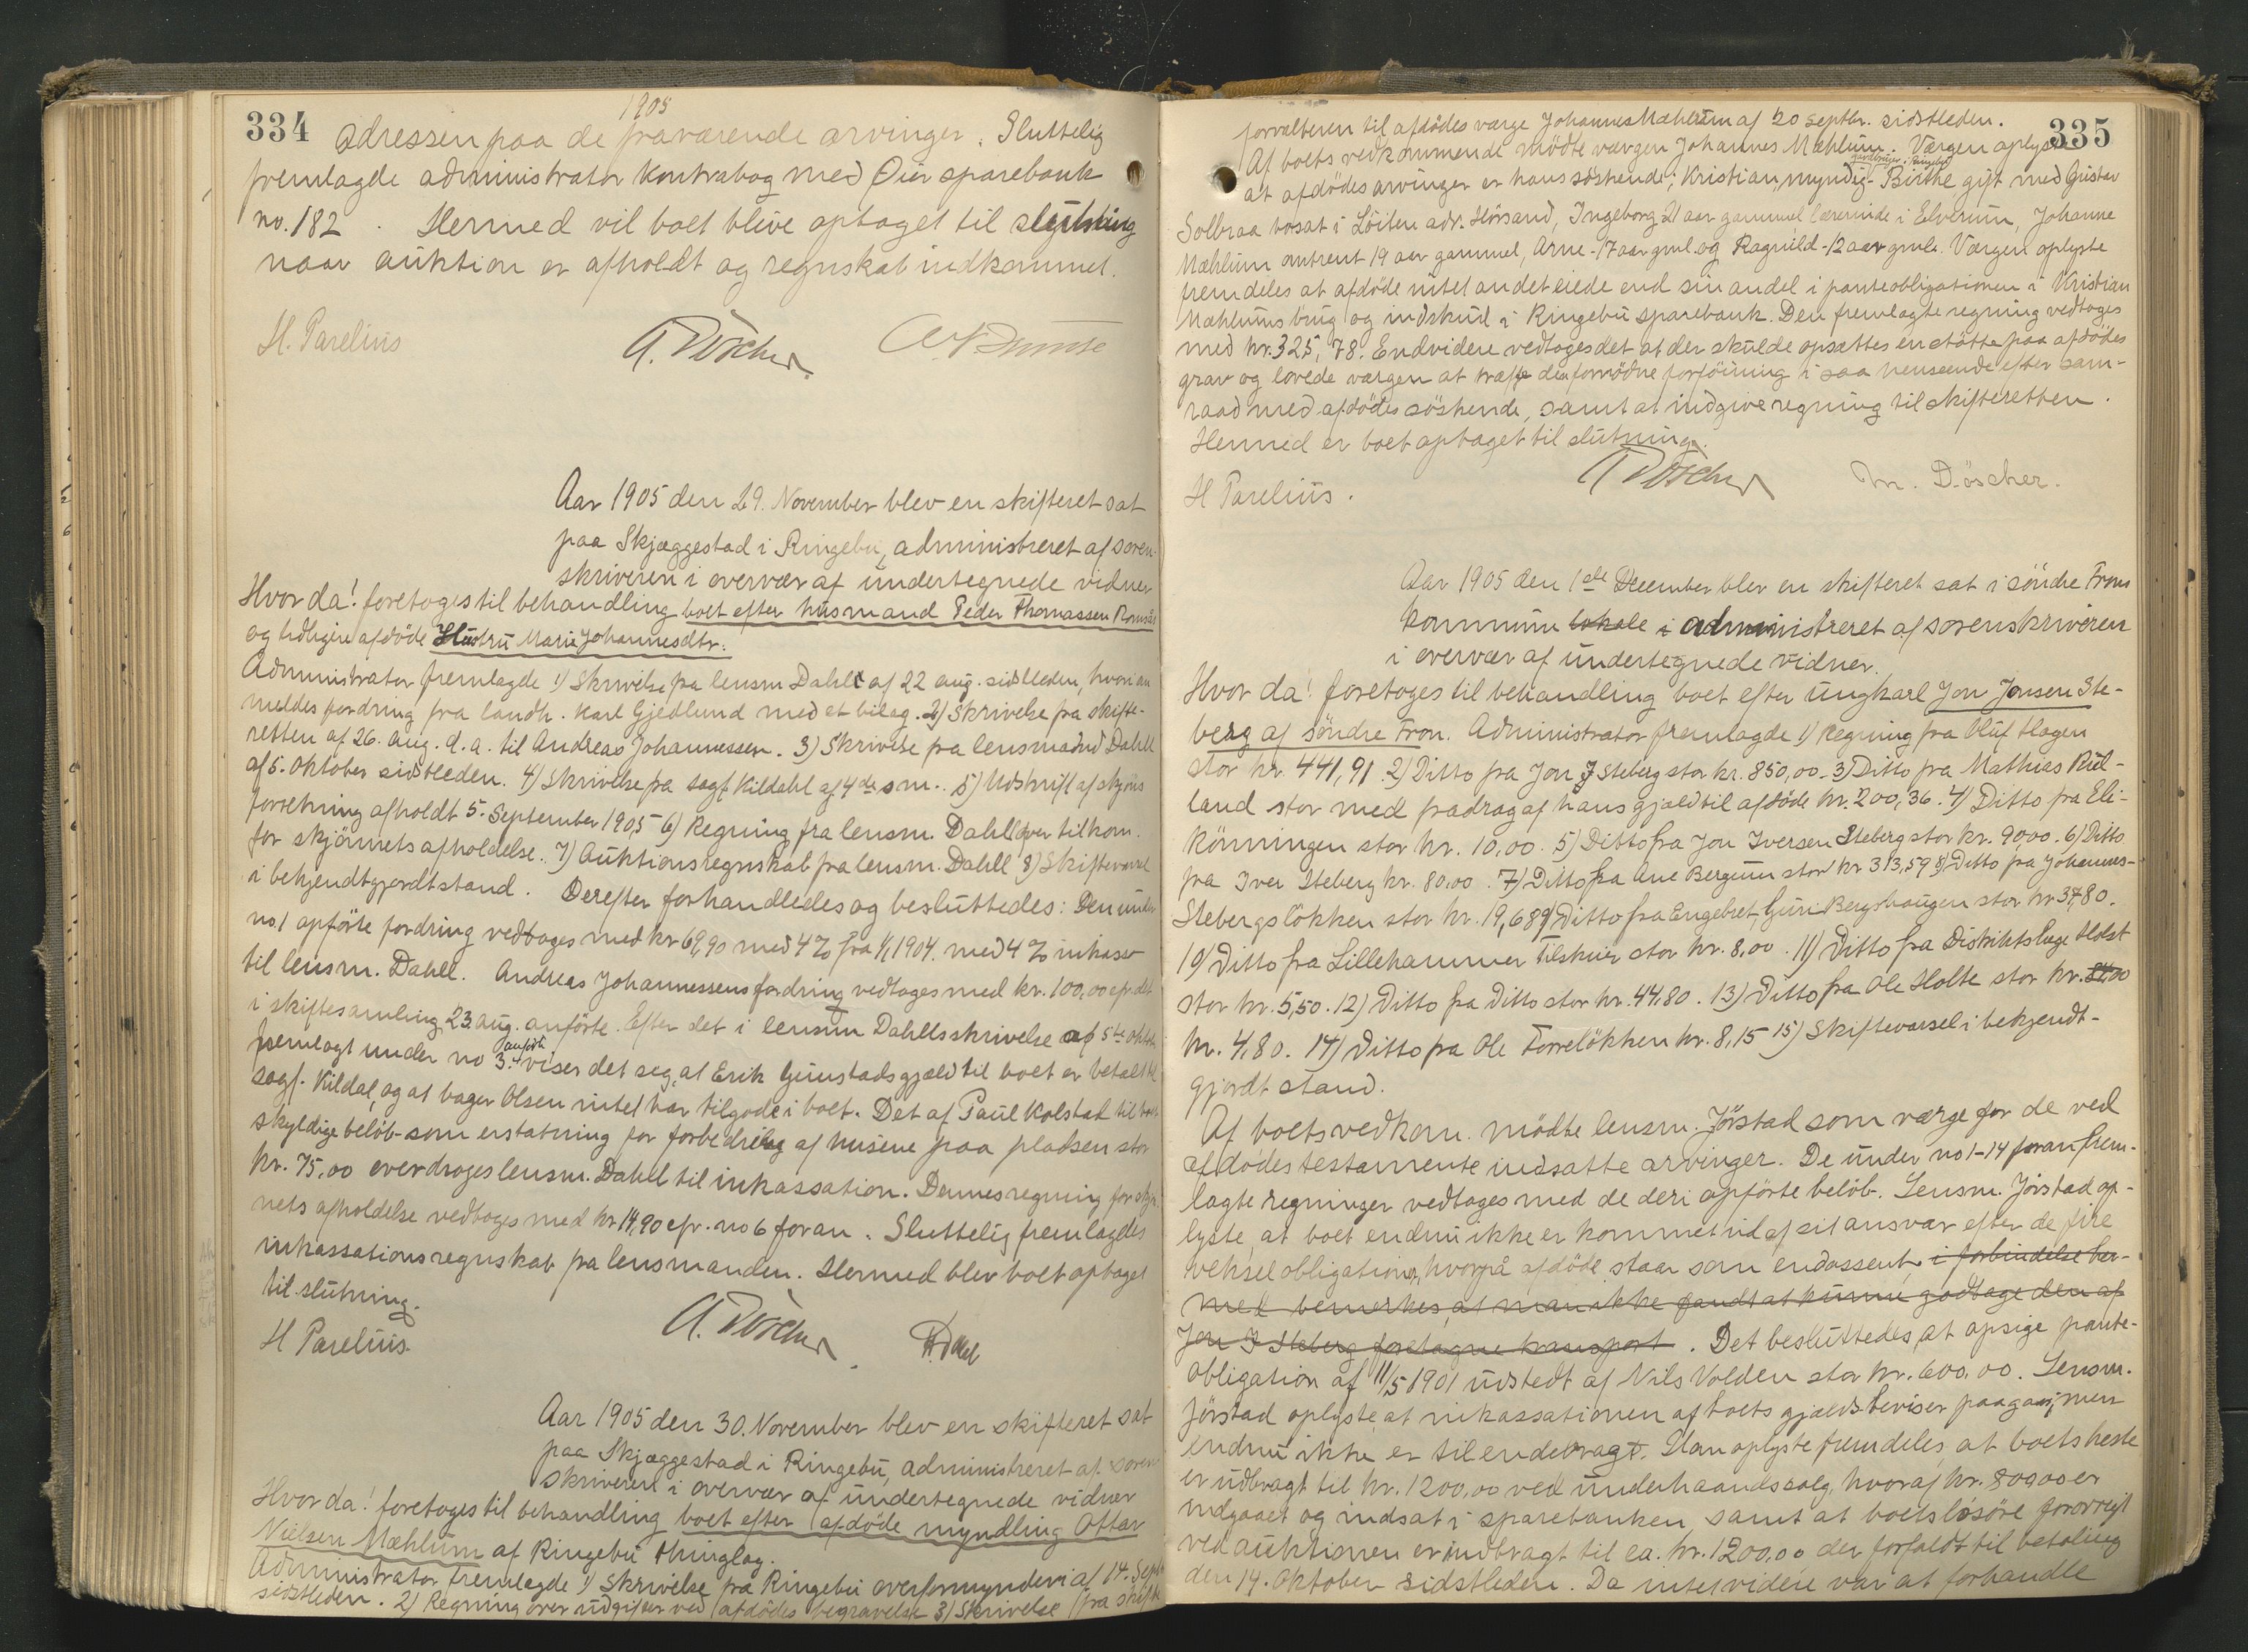 334
1905
adressen paa de fraværende arvinger. Sluttelig
fremlagde administrator kontrabog med Øier sparebank
no. 182. Hermed vil boet blive optaget til slutning
naar auktion er afholdt og regnskab indkommet.
H. Parelius A. Döscher
Aar 1905 den 29. November blev en skifteret sat
paa Skjæggestad i Ringebu, administreret af soren-
skriveren i overvær af undertegnede vidner
Hvor da! foretoges til behandling boet efter husmand Peder Thomassen
og tidligere afdöde Hustru Marie Johannesdtr.
Administrator fremlagde 1) Skrivelse fra lensm Dahl af 22 aug. sidstleden, hvori an
meldes fordring fra landh. Karl Gjedlund med et bilag. 2) Skrivelse fra skifte-
retten af 26. aug. d.a. til Andreas Johannessen. 3) Skrivelse fra lensmand Dahll
af 5. oktober sidstleden. 4) Skrivelse fra sagf. Kildahl af 4de s m.. 5) Udskrift af skjöns
forretning afholdt 5. September 1905 6) Regning fra lensm. Dahll over tilkom.
for skjönnets afholdelse. 7) Auktionsregnskab fra lensm. Dahll 8) Skiftevarsel
i bekjendtgjordt stand. Derefter forhandledes og besluttedes: Den under
no. 1 opförte fordring vedtoges med kr 69,90 med 4 % fra 1/1 1904. med 4 % inkasso
til lensm. Dahll. Andreas Johannessens fordring vedtoges med kr. 100,00 cfr. det
i skiftesamling 23. aug. anförte. Efter det i lensm Dahlls skrivelse af 5te oktbr
fremlagt under no 3. anförte viser det seg, at Erik Gunstads gjæld til boet er betalt til
sagf. Kildal, og at bager Olsen intet har tilgode i boet. Det af Paul Kolstad til boet
skyldige belöb som erstatning for forbedring af husene paa pladsen stor
kr. 75,00 overdroges lensm. Dahl til inkassation. Dennes regning for skjön
nets afholdelse vedtoges med kr. 14,90 cfr. no 6 foran. Sluttelig fremlagdes
inkassationsregnskab fra lensmanden. Hermed blev boet optaget
til slutning.
H Parelius. A. Döscher. H. Dahl
Aar 1905 den 30. November blev en skifteret sat
paa Skjæggestad i Ringebu, administreret af soren
skriveren i overvær af undertegnede vidner
Hvor da! foretoges til behandling boet efter afdöde myndling Ottar
Nielsen Mæhlum af Ringebu thinglag.
Administrator fremlagde 1) Skrivelse fra Ringebu overformynderi af 14. Sept
sidstleden. 2) Regning over udgifter ved afdödes begravelse 3) Skrivelse fra skifte
335
forvalteren til afdödes værge Johannes Mæhlum af 20 septbr. sidstleden.
Af boets vedkommende mödte værgen Johannes Mæhlum. Værgen oplyste
at afdödes arvinger er hans söskende; Kristian, myndig gardbruger i Ringebu - Birthe gift med Gustav
Solbraa bosat i Löiten adr. Hörsand, Ingeborg 21 aar gammel lærerinde i Elverum, Johanne
Mæhlum omtrent 19 aar gammel, Arne - 17 aar gml. og Ragnild - 12 aar gmle. Værgen oplyste
fremdeles at afdöde intet andet eiede end sin andel i panteobligationen i Kristian
Mæhlums brug og indskud i Ringebu sparebank. Den fremlagte regning vedtoges
med kr. 325,78. Endvidere vedtoges det at der skulde opsættes en støtte paa afdödes
grav og lovede værgen at træffe den fornödne forföining i saa henseende efter sam-
raad med afdödes söskende, samt at indgive regning til skifteretten.
Hermed er boet optaget til slutning.
H Parelius. A Döscher M. Döscher.
Aar 1905 den 1ste December blev en skifteret sat i söndre Frons
kommune lokale i administreret af sorenskriveren
i overvær af undertegnede vidner.
Hvor da! foretoges til behandling boet efter ungkarl Jon Jonsen Ste-
berg af söndre Fron. Administrator fremlagde 1) Regning fra Oluf Hagen
stor kr. 441,91. 2) Ditto fra Jon J Steberg stor kr. 850,00. 3) Ditto fra Mathias Rul-
land stor med fradrag af hans gjæld til afdöde kr. 200,36. 4) Ditto fra Eli-
könningen stor kr. 10,00. 5) Ditto fra Jon Iversen Steberg stor kr. 90,00. 6) Ditto
fra Iver Steberg kr. 80,00. 7) Ditto fra Ane Bergum stor kr 313,59 8) Ditto fra Johannes-
Stebergslökken stor kr. 19,68 9) Ditto fra Engebret, Guri Bergshaugen stor kr 34,80.
10) Ditto fra Lillehammer Tilskuer stor kr. 8,00. 11) Ditto fra Distriktslæge Holst
stor kr. 5,50. 12) Ditto fra Ditto stor kr. 44,80. 13) Ditto fra Ole Holte stor kr.
kr. 4,80. 14) Ditto fra Ole Torrelökken kr. 8,15 15) Skiftevarsel i bekjendt-
gjordt stand.
Af boets vedkom. mödte lensm. Jörstad som værge for de ved
afdödes testamente indsatte arvinger. De under no 1-14 foran frem-
lagte regninger vedtoges med de deri opförte belöb. Lensm. Jörstad op-
lyste, at boet endnu ikke er kommet ud af sit ansvar efter de fire
vekselobligationer, hvorpå afdöde staar som endossent, i forbindelse her-
med bemerkes, at man ikke fandt at kunne godtage den af
Jon J Steberg foretagne transport. Det besluttedes, at opsige pante-
obligation af 11/5 1901 udstedt af Nils Volden stor kr. 600,00. Lensm.
Jörstad oplyste, at inkassationen af boets gjældsbeviser paagaar, men
endnu ikke er tilendebragt. Han oplyste fremdeles, at boets heste
er udbragt til kr. 1200,00 ved underhaandssalg, hvoraf kr. 800,00 er
indgaaet og indsat i sparebanken, samt at boets lösöre forövrigt
ved auktionen er indbragt til ca. kr. 1200,00 der forfaldt til betaling
den 14. Oktober sidstleden. Da intet videre var at forhandle